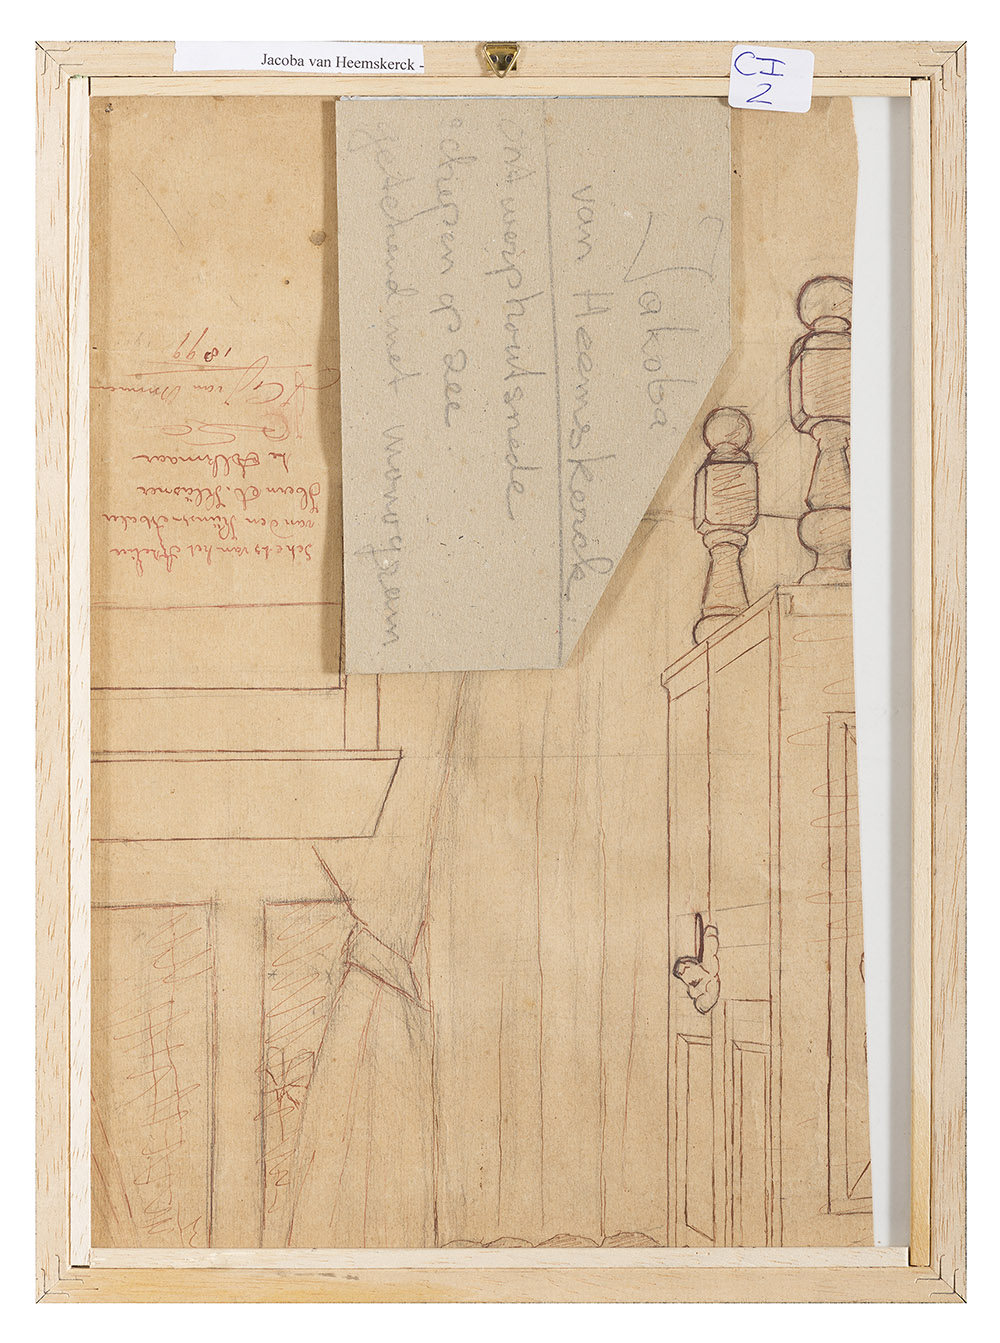 Jacoba van Heemskerck -
CH
2
Jakoba
van Heemskerck
ontwerp houtsnede
schepen op zee.
getekend met monogram
Schets van het Atelier
van den Kunstschilder
Hern A. Klüsner
te Alkmaar
van
1899